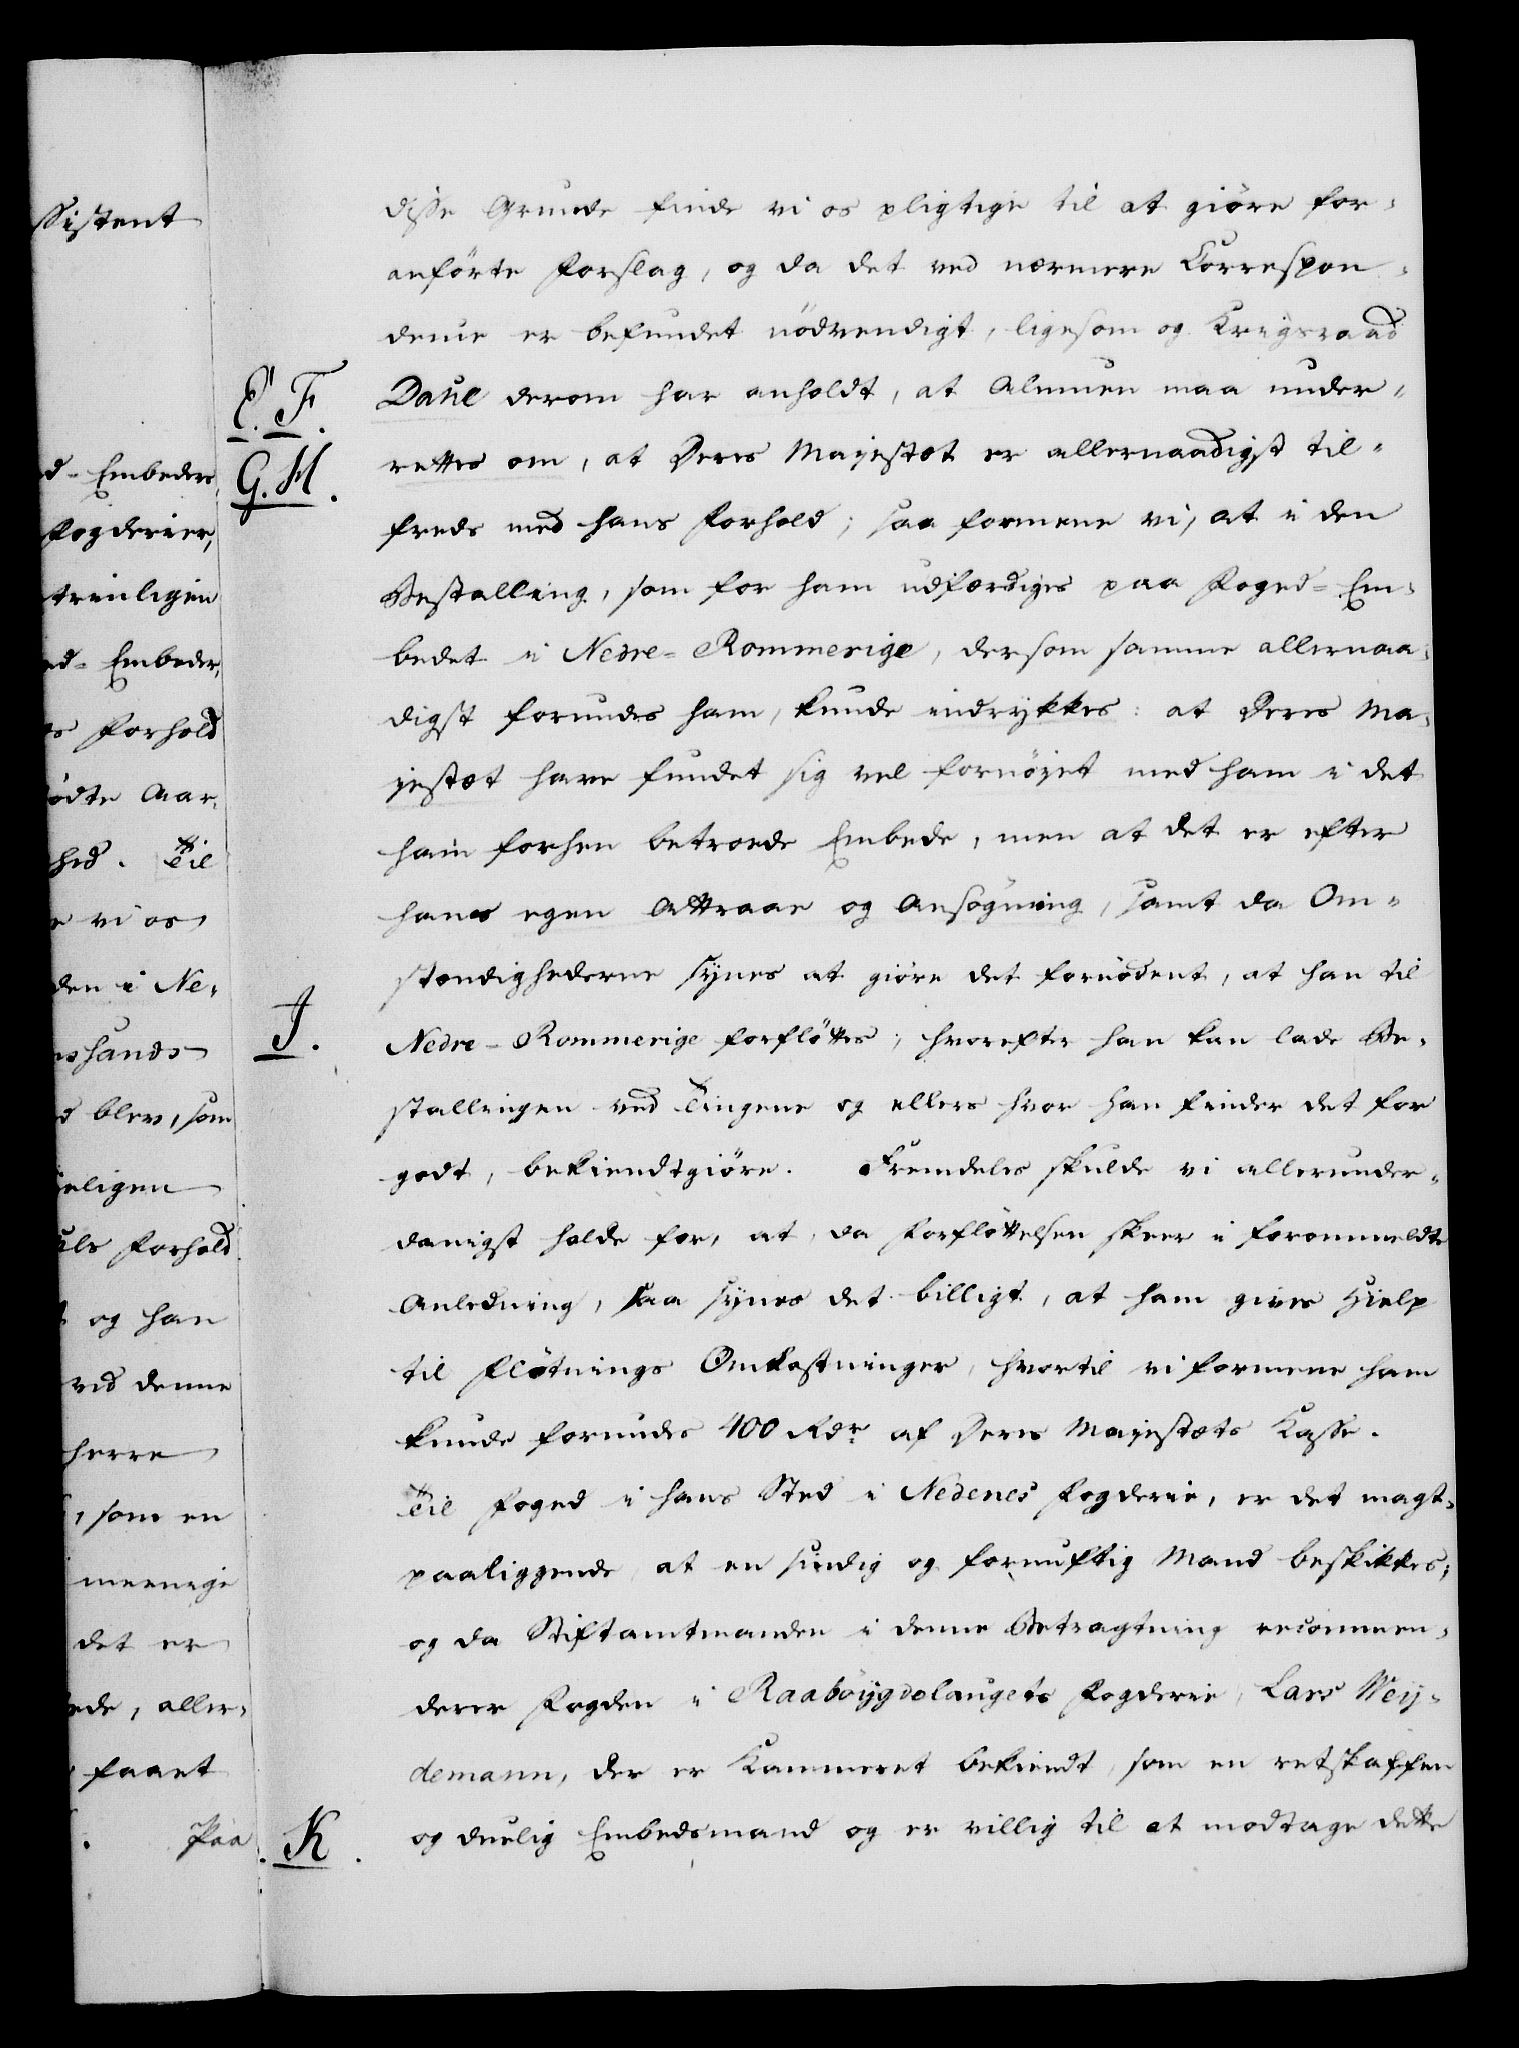 ssistent
d=Embeder,
fogderier,
trinligen
ed=Embeder,
s Forhold
ödte Aar,
hed. Til
e vi os
den i Ne-
nshands
d blev, som
eligen
uls Forhold
og han
ved denne
herre
, som en
meenige
det er
ede, aller-
faaet
Paa
disse Grunde finde vi os pligtige til at giöre for-
anförte Forslag, og da det ved nærmere Correspon-
dence er befundet nödvendigt, ligesom og Krigsraad
E. F.
Dahl derom har anholdt, at Almuen maa under-
G. H.
rettes om, at Deres Majestæt er allernaadigst til-
freds med hans Forhold; saa formene vi, at i den
Bestalling, som for ham udfærdiges paa Foged=Em-
bedet i Nedre=Rommerige, dersom samme allernaa-
digst forundes ham, kunde indrykkes: at Deres Ma-
jestæt have fundet sig vel fornöjet med ham i det
ham forhen betroede Embede, men at det er efter
hans egen Attraae og Ansögning, samt da Om-
stændighederne synes at giöre det fornödent, at han til
J.
Nedre=Rommerige forflöttes; hvorefter han kan lade Be-
stallingen ved Tingene og ellers hvor han finder det for
godt, bekiendtgiöre. Fremdeles skulde vi allerunder-
danigst holde for, at, da Forflöttelsen skeer i forommeldte
Anledning, saa synes det billigt, at ham gives Hielp
til Flötnings Omkostninger, hvortil vi formene ham
kunde forundes 400 Rdr af Deres Majestæts Kasse.
Til Foged i hans Sted i Nedenes Fogderie, er det magt-
paaliggende, at en sindig og fornuftig Mand beskikkes;
og da Stiftamtmanden i denne Betragtning recommen-
derer Fogden i Raaböygdolaugets Fogderie, Lars Wey-
demann, der er Kammeret bekiendt, som en retskaffen
K.
og duelig Embedsmand og er villig til at modtage dette